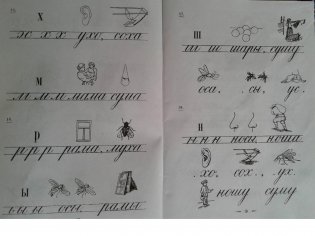 х
х х х ухо, соха
м
м м м мама сума
р
р р р рама, муха
ы
ы ы ы осы, рамы
ш
ш ш шары, сушу
оса. .сы, ус.
н
н н н носы, ноша
.хо, сох., .ух.
ношу суму